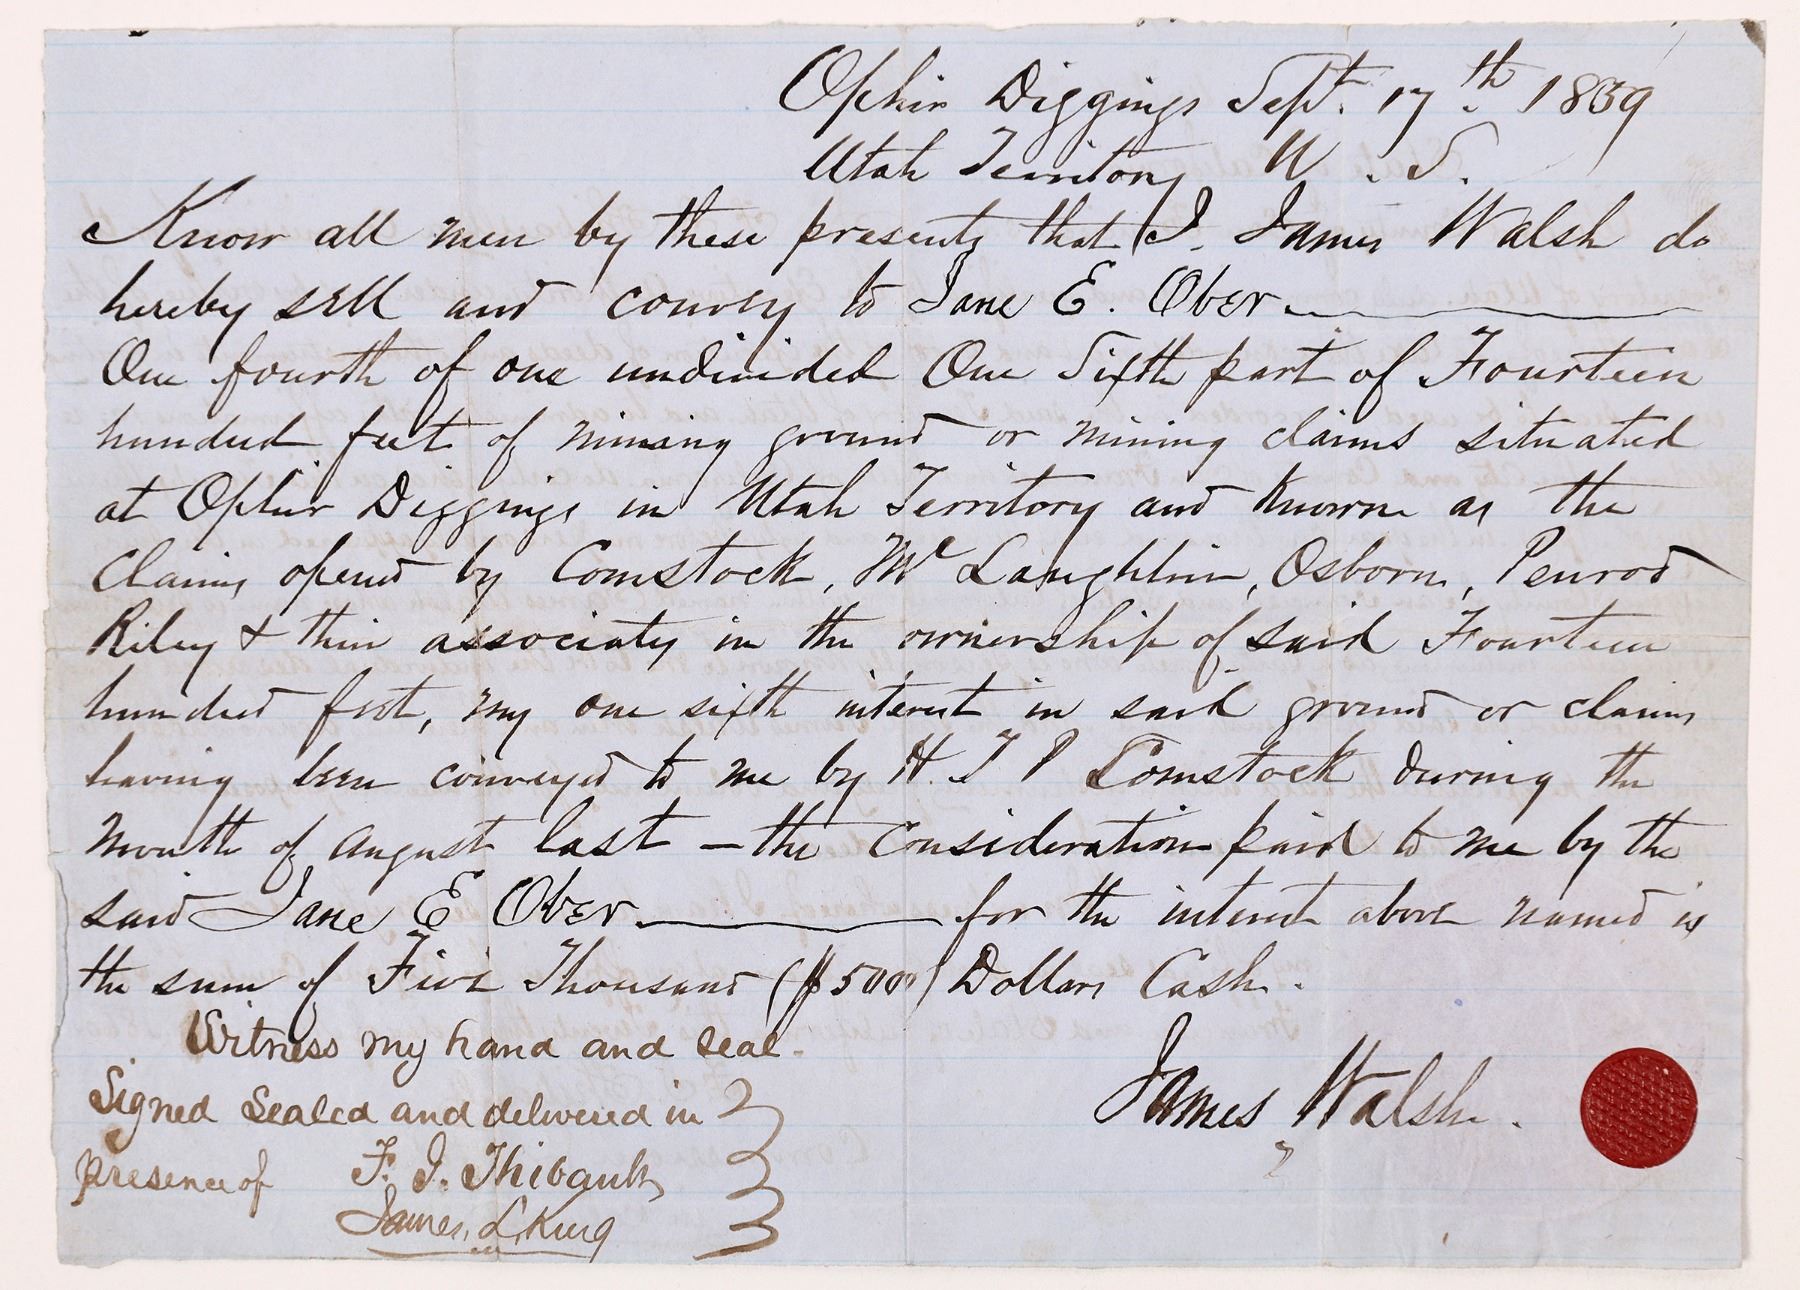 Ophir Diggings Sept. 17th 1859
Utah Territory U. S.
Know all men by these presents that I. James Walsh do
hereby sell and convey to Jane E. Ober
One fourth of one undivided One Sixth part of Fourteen
hundred feet of mining ground or mining claims situated
at Ophir Diggings in Utah Territory and Known as the
Claims opened by Comstock, Mc Laughlin, Osborn, Penrod
Riley & their associates in the ownership of said Fourteen
hundred feet, my one sixth interest in said ground or claims
having been conveyed to me by H. T P Comstock during the
month of August last — the Consideration paid to me by the
said Jane E Ober for the interest above named is
the sum of Five Thousand ($5000) Dollars Cash.
Witness my hand and seal.
James Walsh.
Signed Sealed and delivered in
presence of F. J. Thibault
James L King